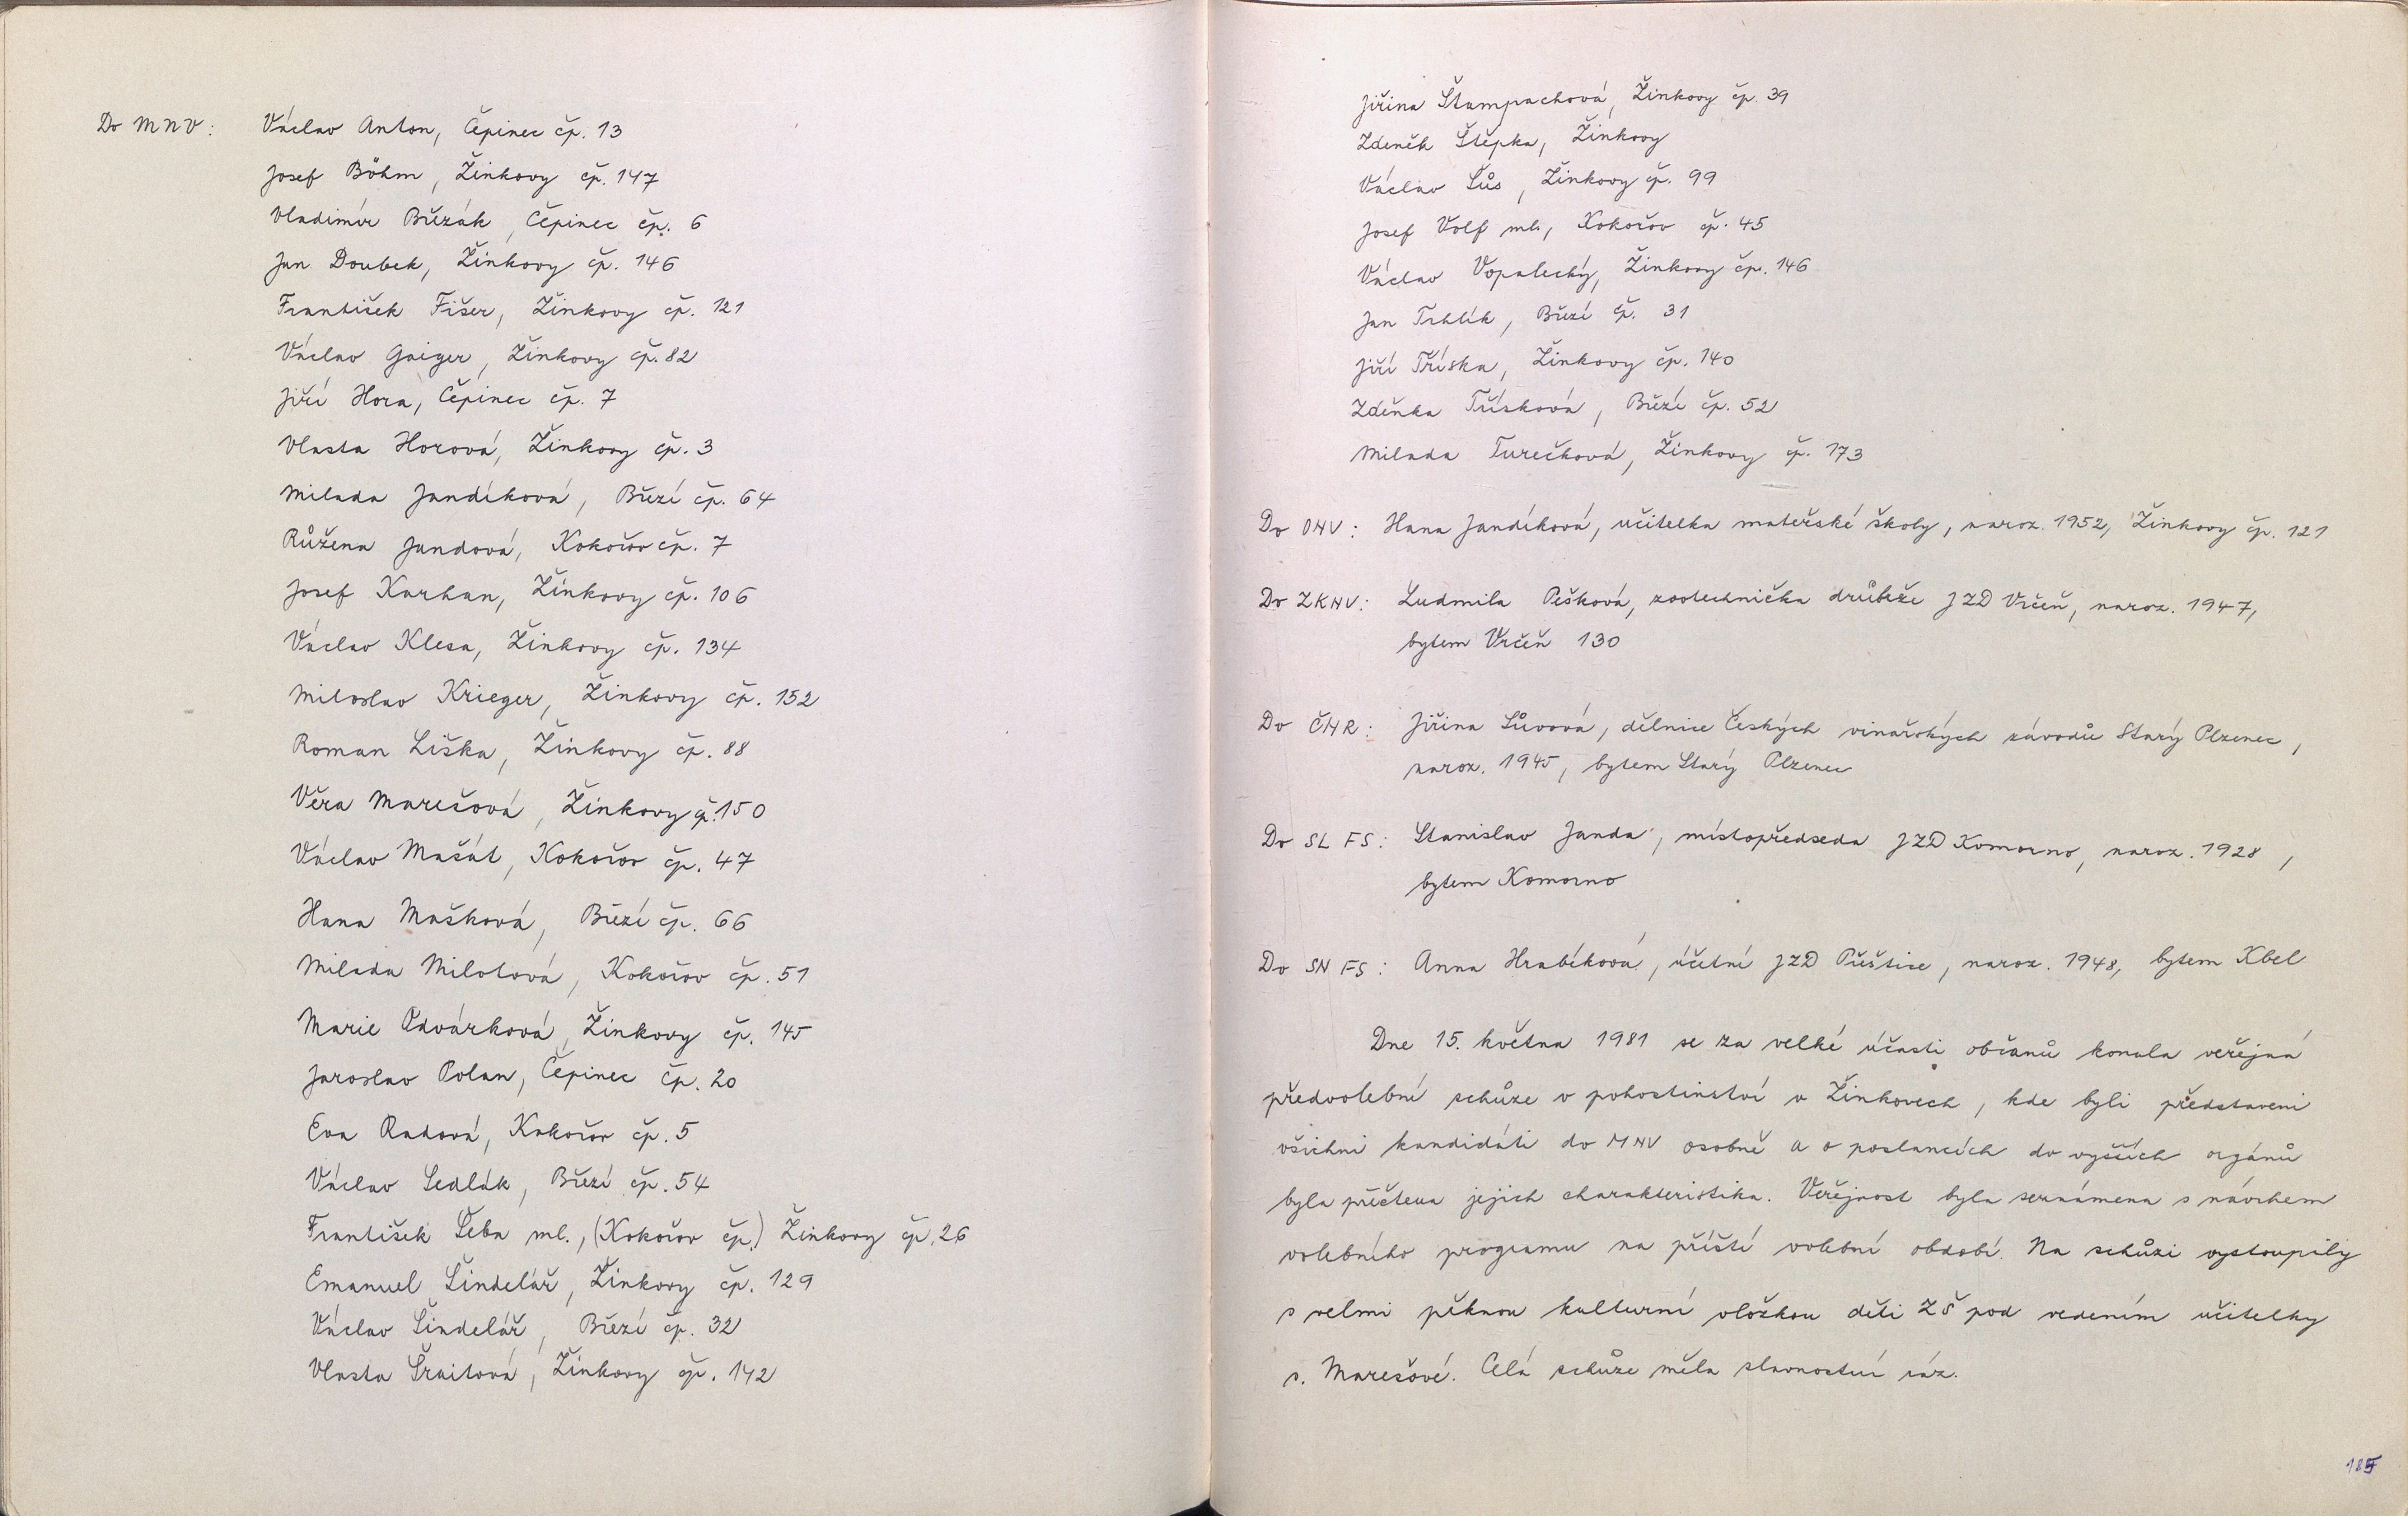 Do MNV: Václav Anton, Čepinec čp. 13
Josef Böhm, Žinkovy čp. 147
Vladimír Břízák, Čepinec čp. 6
Jan Doubek, Žinkovy čp. 146
František Fišer, Žinkovy čp. 121
Václav Gaiger, Žinkovy čp. 82
Jiří Hora, Čepinec čp. 7
Vlasta Horová, Žinkovy čp. 3
Milada Jandíková, Březí čp. 64
Růžena Jandová, Kokořov čp. 7
Josef Karhan, Žinkovy čp. 106
Václav Klesa, Žinkovy čp. 134
Miloslav Krieger, Žinkovy čp. 152
Roman Liška, Žinkovy čp. 88
Věra Marešová, Žinkovy čp. 150
Václav Mašát, Kokořov čp. 47
Hana Mašková, Březí čp. 66
Milada Milotová, Kokořov čp. 51
Marie Odvárková, Žinkovy čp. 145
Jaroslav Polan, Čepinec čp. 20
Eva Radová, Kokořov čp. 5
Václav Sedlák, Březí čp. 54
František Šeba ml., (Kokořov čp.) Žinkovy čp. 26
Emanuel Šindelář, Žinkovy čp. 129
Václav Šindelář, Březí čp. 32
Vlasta Šraitová, Žinkovy čp. 142
Jiřina Štampachová, Žinkovy čp. 39
Zdeněk Štěpka, Žinkovy
Václav Šůs, Žinkovy čp. 99
Josef Volf ml., Kokořov čp. 45
Václav Vopalecký, Žinkovy čp. 146
Jan Trhlík, Březí čp. 31
Jiří Tříska, Žinkovy čp. 140
Zdeňka Třísková, Březí čp. 52
Milada Turečková, Žinkovy čp. 173
Do ONV: Hana Jandíková, učitelka mateřské školy, naroz. 1952, Žinkovy čp. 121
Do ZKNV: Ludmila Pešková, zootechnička drůbeže JZD Vrčeň, naroz. 1947,
bytem Vrčeň 130
Do ČNR: Jiřina Sůvová, dělnice Českých vinařských závodů Starý Plzenec,
naroz. 1945, bytem Starý Plzenec
Do SL FS: Stanislav Janda, místopředseda JZD Komorno, naroz. 1928,
bytem Komorno
Do SN FS: Anna Hrabíková, účetní JZD Přeštice, naroz. 1948, bytem Kbel
Dne 15. května 1981 se za velké účasti občanů konala veřejná
předvolební schůze v pohostinství v Žinkovech, kde byli představeni
všichni kandidáti do MNV osobně a o poslancích do vyšších orgánů
byla přečtena jejich charakteristika. Veřejnost byla seznámena s návrhem
volebního programu na příští volební období. Na schůzi vystoupily
s velmi pěknou kulturní vložkou děti ZŠ pod vedením učitelky
s. Marešové. Celá schůze měla slavnostní ráz.